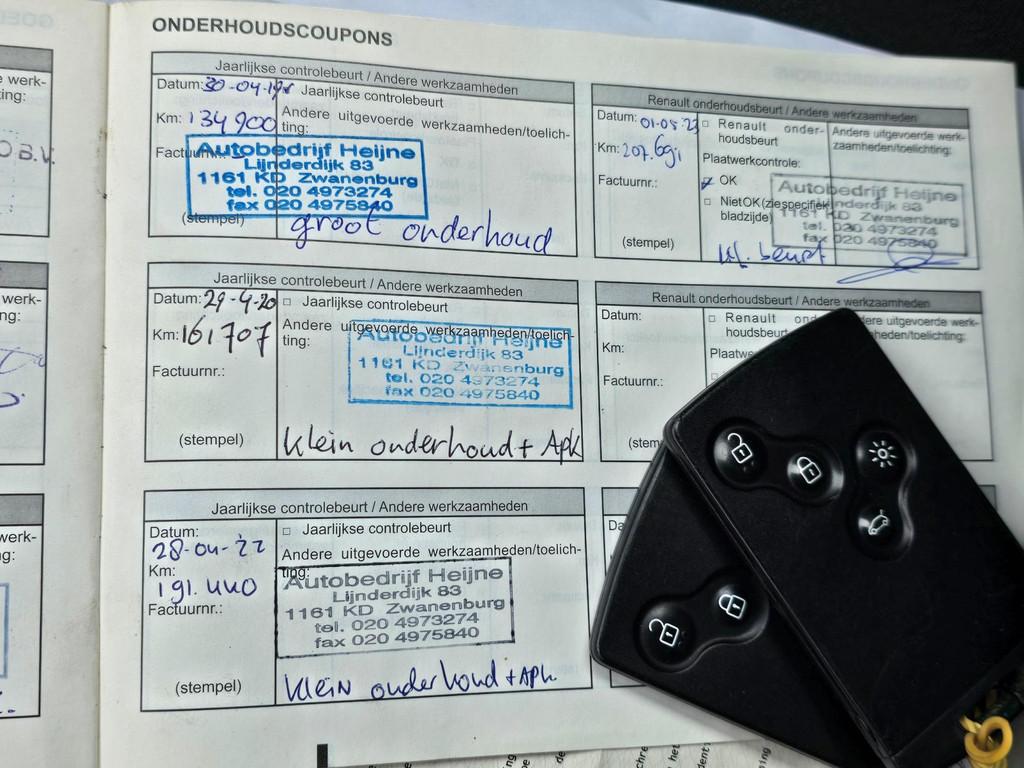 ONDERHOUDSCOUPONS
Jaarlijkse controlebeurt / Andere werkzaamheden
Datum: 30-04-19
Jaarlijkse controlebeurt
Km: 134900
Andere uitgevoerde werkzaamheden/toelich-
ting:
Autobedrijf Heijne
Lijnderdijk 83
1161 KD Zwanenburg
tel. 020 4973274
fax 020 4975840
(stempel)
groot onderhoud
Jaarlijkse controlebeurt / Andere werkzaamheden
Datum: 29-4-20
□ Jaarlijkse controlebeurt
Km: 161707
Andere uitgevoerde werkzaamheden/toelich-
ting:
Factuurnr.:
Autobedrijf Heijne
Lijnderdijk 83
1161 KD Zwanenburg
tel. 020 4973274
fax 020 4975840
(stempel)
klein onderhoud + Apk
Jaarlijkse controlebeurt / Andere werkzaamheden
Datum:
28-04-'22
□ Jaarlijkse controlebeurt
Andere uitgevoerde werkzaamheden/toelich-
ting:
Km:
191.440
Factuurnr.:
Autobedrijf Heijne
Lijnderdijk 83
1161 KD Zwanenburg
tel. 020 4973274
fax 020 4975840
(stempel)
klein onderhoud + APK
Renault onderhoudsbeurt / Andere werkzaamheden
Datum: 01-05-23
□ Renault onder-
houdsbeurt
Andere uitgevoerde werk-
zaamheden/toelichting:
Km: 207.691
Plaatwerkcontrole:
Factuurnr.:
OK
□ Niet OK (zie specifiek
bladzijde)
Autobedrijf Heijne
Lijnderdijk 83
1161 KD Zwanenburg
tel. 020 4973274
fax 020 4975840
(stempel)
kl. beurt
Renault onderhoudsbeurt / Andere werkzaamheden
Datum:
□ Renault
houdsbeurt
werk-
zaamheden/toelichting:
Km:
Factuurnr.: